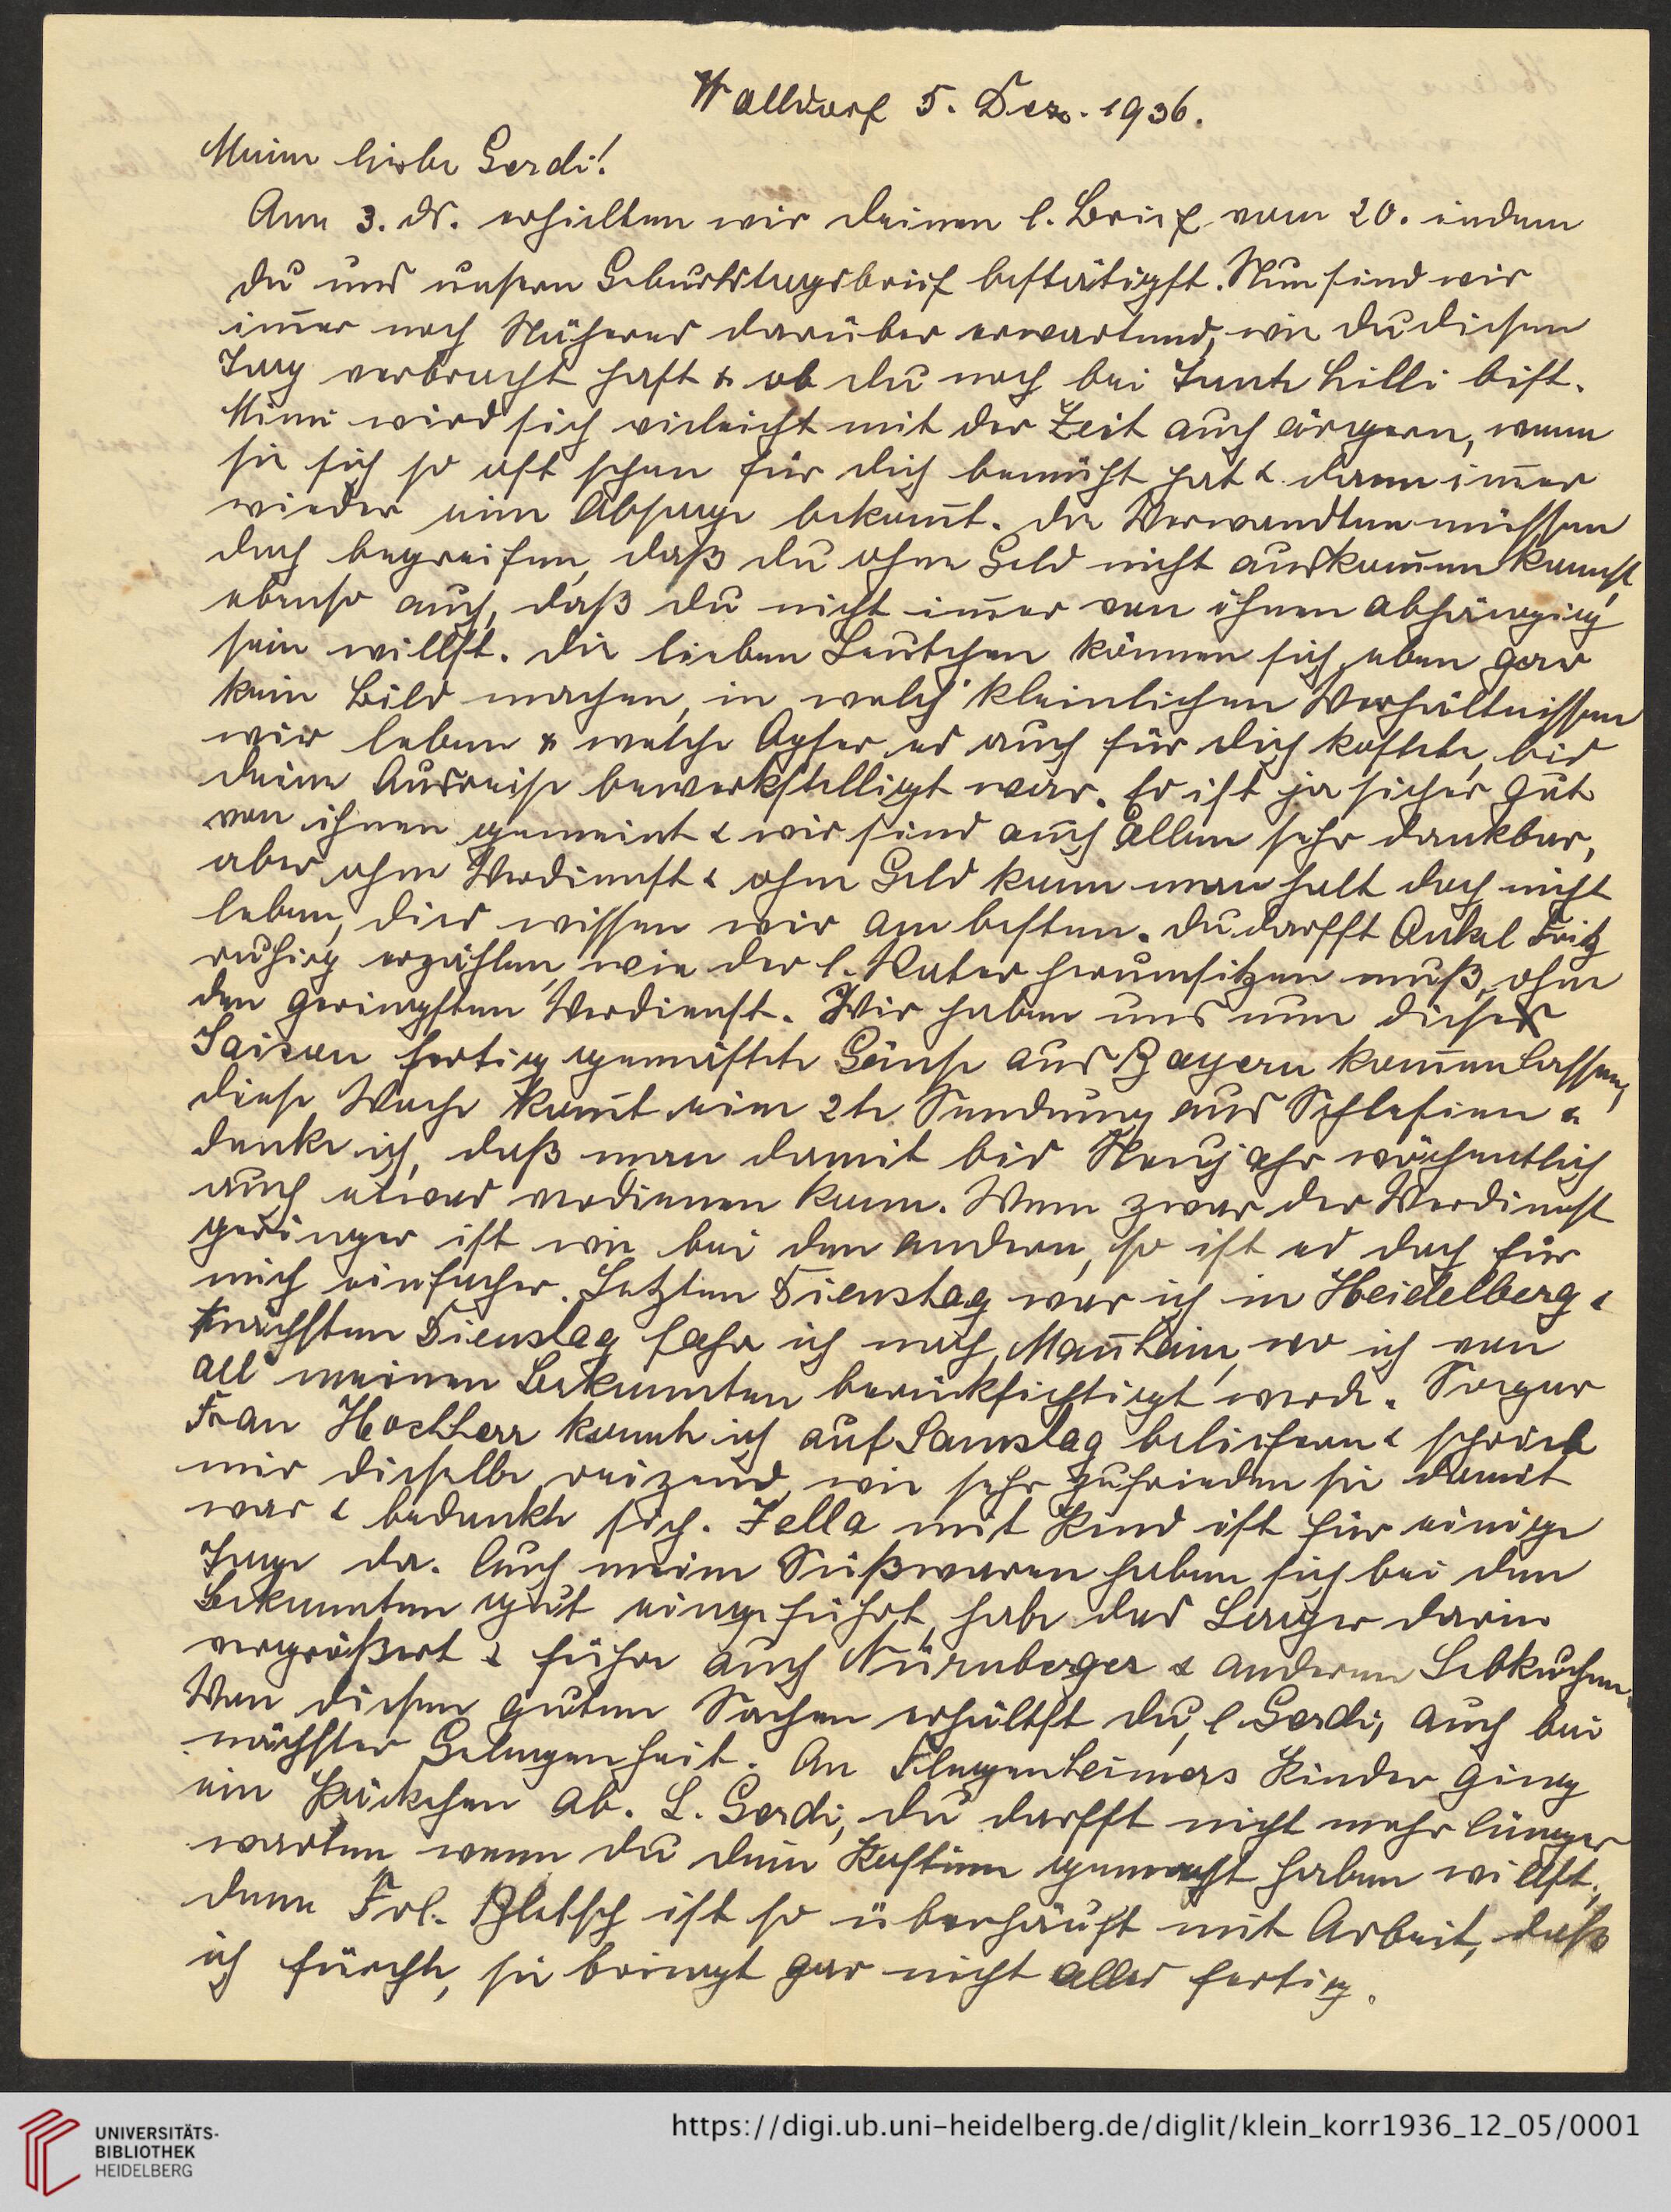 Walldorf 5. Dez. 1936.
Meine liebe Gerdi!
Am 3. ds. erhielten wir deinen l. Brief vom 20. indem
du uns unsern Geburtstagsbrief bestätigst. Nun sind wir
im̅er noch Näheres darüber erwartend, wie du diesen
Tag verbracht hast & ob du noch bei Tante Hilli bist.
Mimi wird sich vieleicht mit der Zeit auch ärgern, wenn
sie sich so oft schon für dich bemüht hat & dann im̅er
wieder eine Absage bekom̅t. Die Verwandten müssen
doch begreifen, daß du ohne Geld nicht auskom̅en kannst,
ebenso auch, daß du nicht im̅er von ihnen abhängig
sein willst. Die lieben Leutchen können sich eben gar
kein Bild machen, in welch' kleinlichen Verhältnissen
wir leben & welche Opfer es auch für dich kostete, bis
deine Ausreise bewerkstelligt war. Es ist ja sicher gut
von ihnen gemeint & wir sind auch Allen sehr dankbar,
aber ohne Verdienst & ohne Geld kann man halt doch nicht
leben, dies wissen wir am besten. Du darfst Onkel Fritz
ruhig erzählen, wie der l. Vater herumsitzen muß, ohne
den geringsten Verdienst. Wir haben uns nun diese
Saison fertig gemästete Gänse aus Bayern kom̅en lassen,
diese Woche kom̅t eine 2te Sendung aus Schlesien &
denke ich, daß man damit bis Neujahr wöchentlich
auch etwas verdienen kann. Wenn zwar der Verdienst
geringer ist wie bei den andern, so ist es doch für
mich einfacher. Letzten Dienstag war ich in Heidelberg &
nächsten Dienstag fahre ich nach Man̅heim, wo ich von
all meinen Bekannten berücksichtigt werde. Sogar
Frau Hochherr konnte ich auf Samstag beliefern & schrieb
mir dieselbe reizend, wie sehr zufrieden sie damit
war & bedankte sich. Jella mit Kind ist für einige
Tage da. Auch meine Süßwaren haben sich bei den
Bekannten gut eingeführt, habe das Lager darin
vergrößert & führe auch Nürnberger & anderen Lebkuchen.
Von diesen guten Sachen erhältst du, l. Gerdi, auch bei
nächster Gelegenheit. An Flegenheimers Kinder ging
ein Päckchen ab. L. Gerdi, du darfst nicht mehr länger
warten wenn du dein Kostüm gemacht haben willst,
denn Frl. Bletsch ist so überhäuft mit Arbeit, daß
ich fürchte, sie bringt gar nicht alles fertig.
UNIVERSITÄTS-
BIBLIOTHEK
HEIDELBERG
https://digi.ub.uni-heidelberg.de/diglit/klein_korr1936_12_05/0001